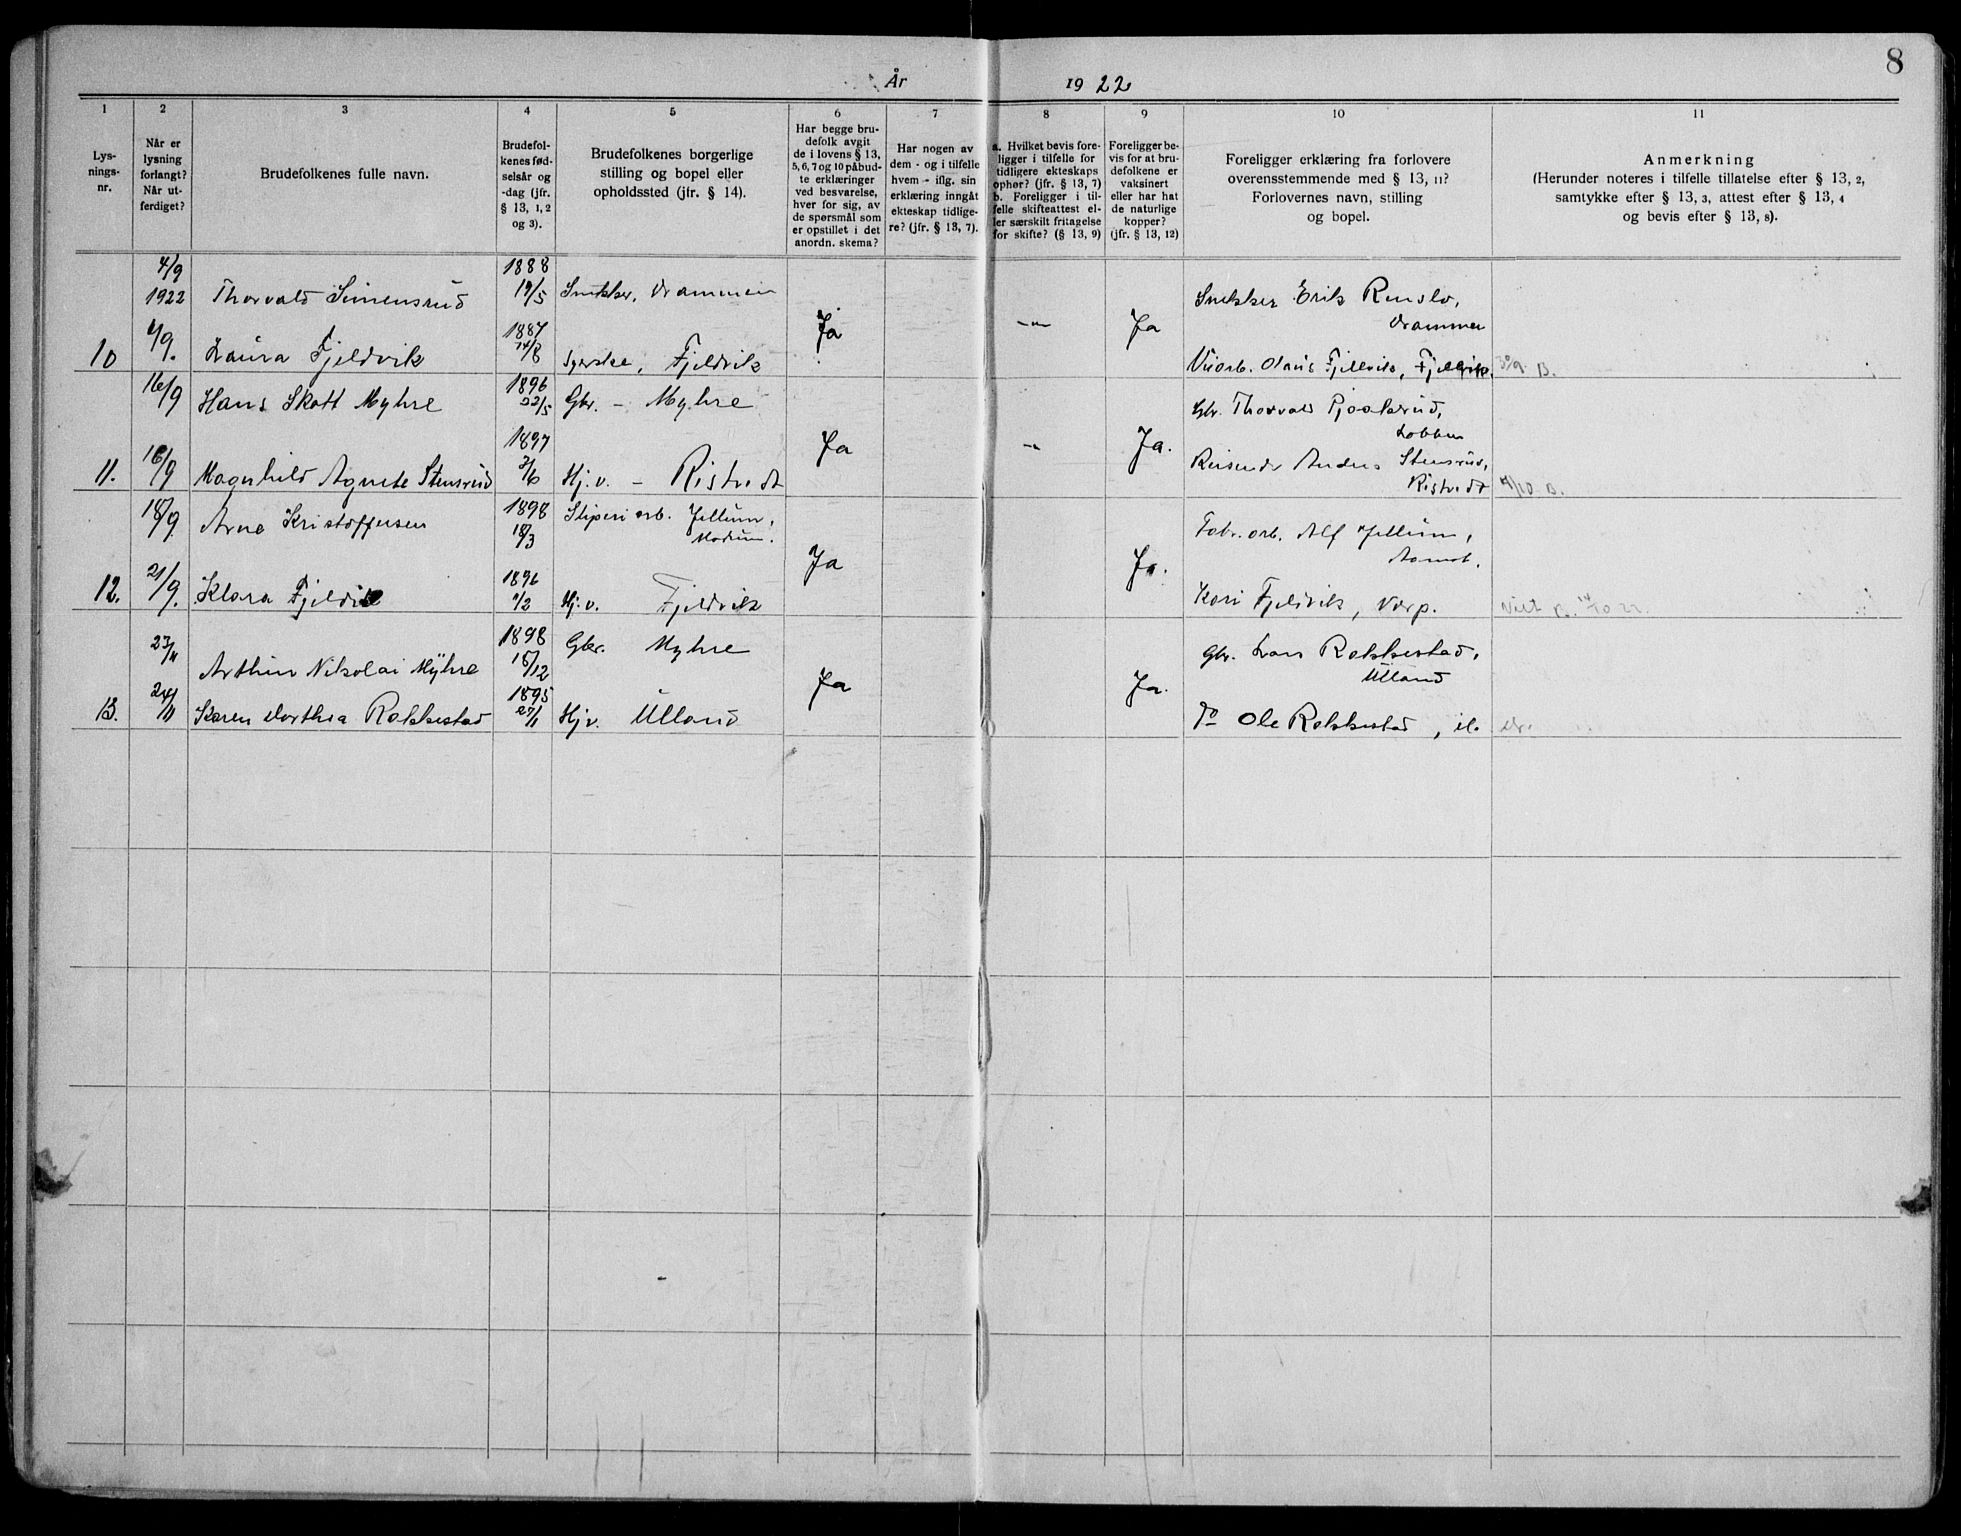 8
År 1922
1
2
3
4
5
6
7
8
9
10
11
Lys-
nings-
nr.
Når er
lysning
forlangt?
Når ut-
ferdiget?
Brudefolkenes fulle navn.
Brudefol-
kenes fød-
selsår og
-dag (jfr.
§ 13, 1, 2
og 3).
Brudefolkenes borgerlige
stilling og bopel eller
opholdssted (jfr. § 14).
Har begge bru-
defolk avgit
de i lovens § 13,
5, 6, 7 og 10 påbud-
te erklæringer
ved besvarelse,
hver for sig, av
de spørsmål som
er opstillet i det
anordn. skema?
Har nogen av
dem - og i tilfelle
hvem - iflg. sin
erklæring inngåt
ekteskap tidlige-
re? (jfr. § 13, 7).
a. Hvilket bevis fore-
ligger i tilfelle for
tidligere ekteskaps
ophør? (jfr. § 13, 7)
b. Foreligger i til-
felle skifteattest el-
ler særskilt fritagelse
for skifte? (§ 13, 9)
Foreligger be-
vis for at bru-
defolkene er
vaksinert
eller har hat
de naturlige
kopper?
(jfr. § 13, 12)
Foreligger erklæring fra forlovere
overensstemmende med § 13, 11?
Forlovernes navn, stilling
og bopel.
Anmerkning
(Herunder noteres i tilfelle tillatelse efter § 13, 2,
samtykke efter § 13, 3, attest efter § 13, 4
og bevis efter § 13, 8).
4/9 1922 Thorvald Simensrud 1888 19/5 Snekker, Drammen Ja Ja Snekker Erik
Drammen
10 4/9. Laura Fjeldvik 1887 14/8 Syerske, Fjeldvik Olaus Fjellvik, Fjellvik. 30/9 B.
16/9 Hans Skott Myhre 1896 22/5 Gbr. - Myhre Gbr. Thorvald
Ja Ja.
11. 16/9 Magnhild Agnete Stensrud 1897 2/6 Hj.v. - Ristvedt Reisende Anders Stensrud,
Ristvedt /10 B.
18/9 Arne Kristoffersen 1898 18/3 Sliperiarb. Jellum, Modum. Fabr. arb. Alf Jellum,
Ja Ja. Aamot.
12. 21/9. Klara Fjeldvik 1896 1/2 Hj.v. Fjeldvik Kari Fjeldvik, Verp. Viet B. 14/10 22.
23/11 Arthur Nikolai Myhre 1898 15/12 Gbr. Myhre Gbr. Lars Rokkestad,
Ulland
Ja Ja.
13. 24/11 Karen Dorthea Rokkestad 1895 27/1 Hjv. Ulland do Ole Rokkestad,